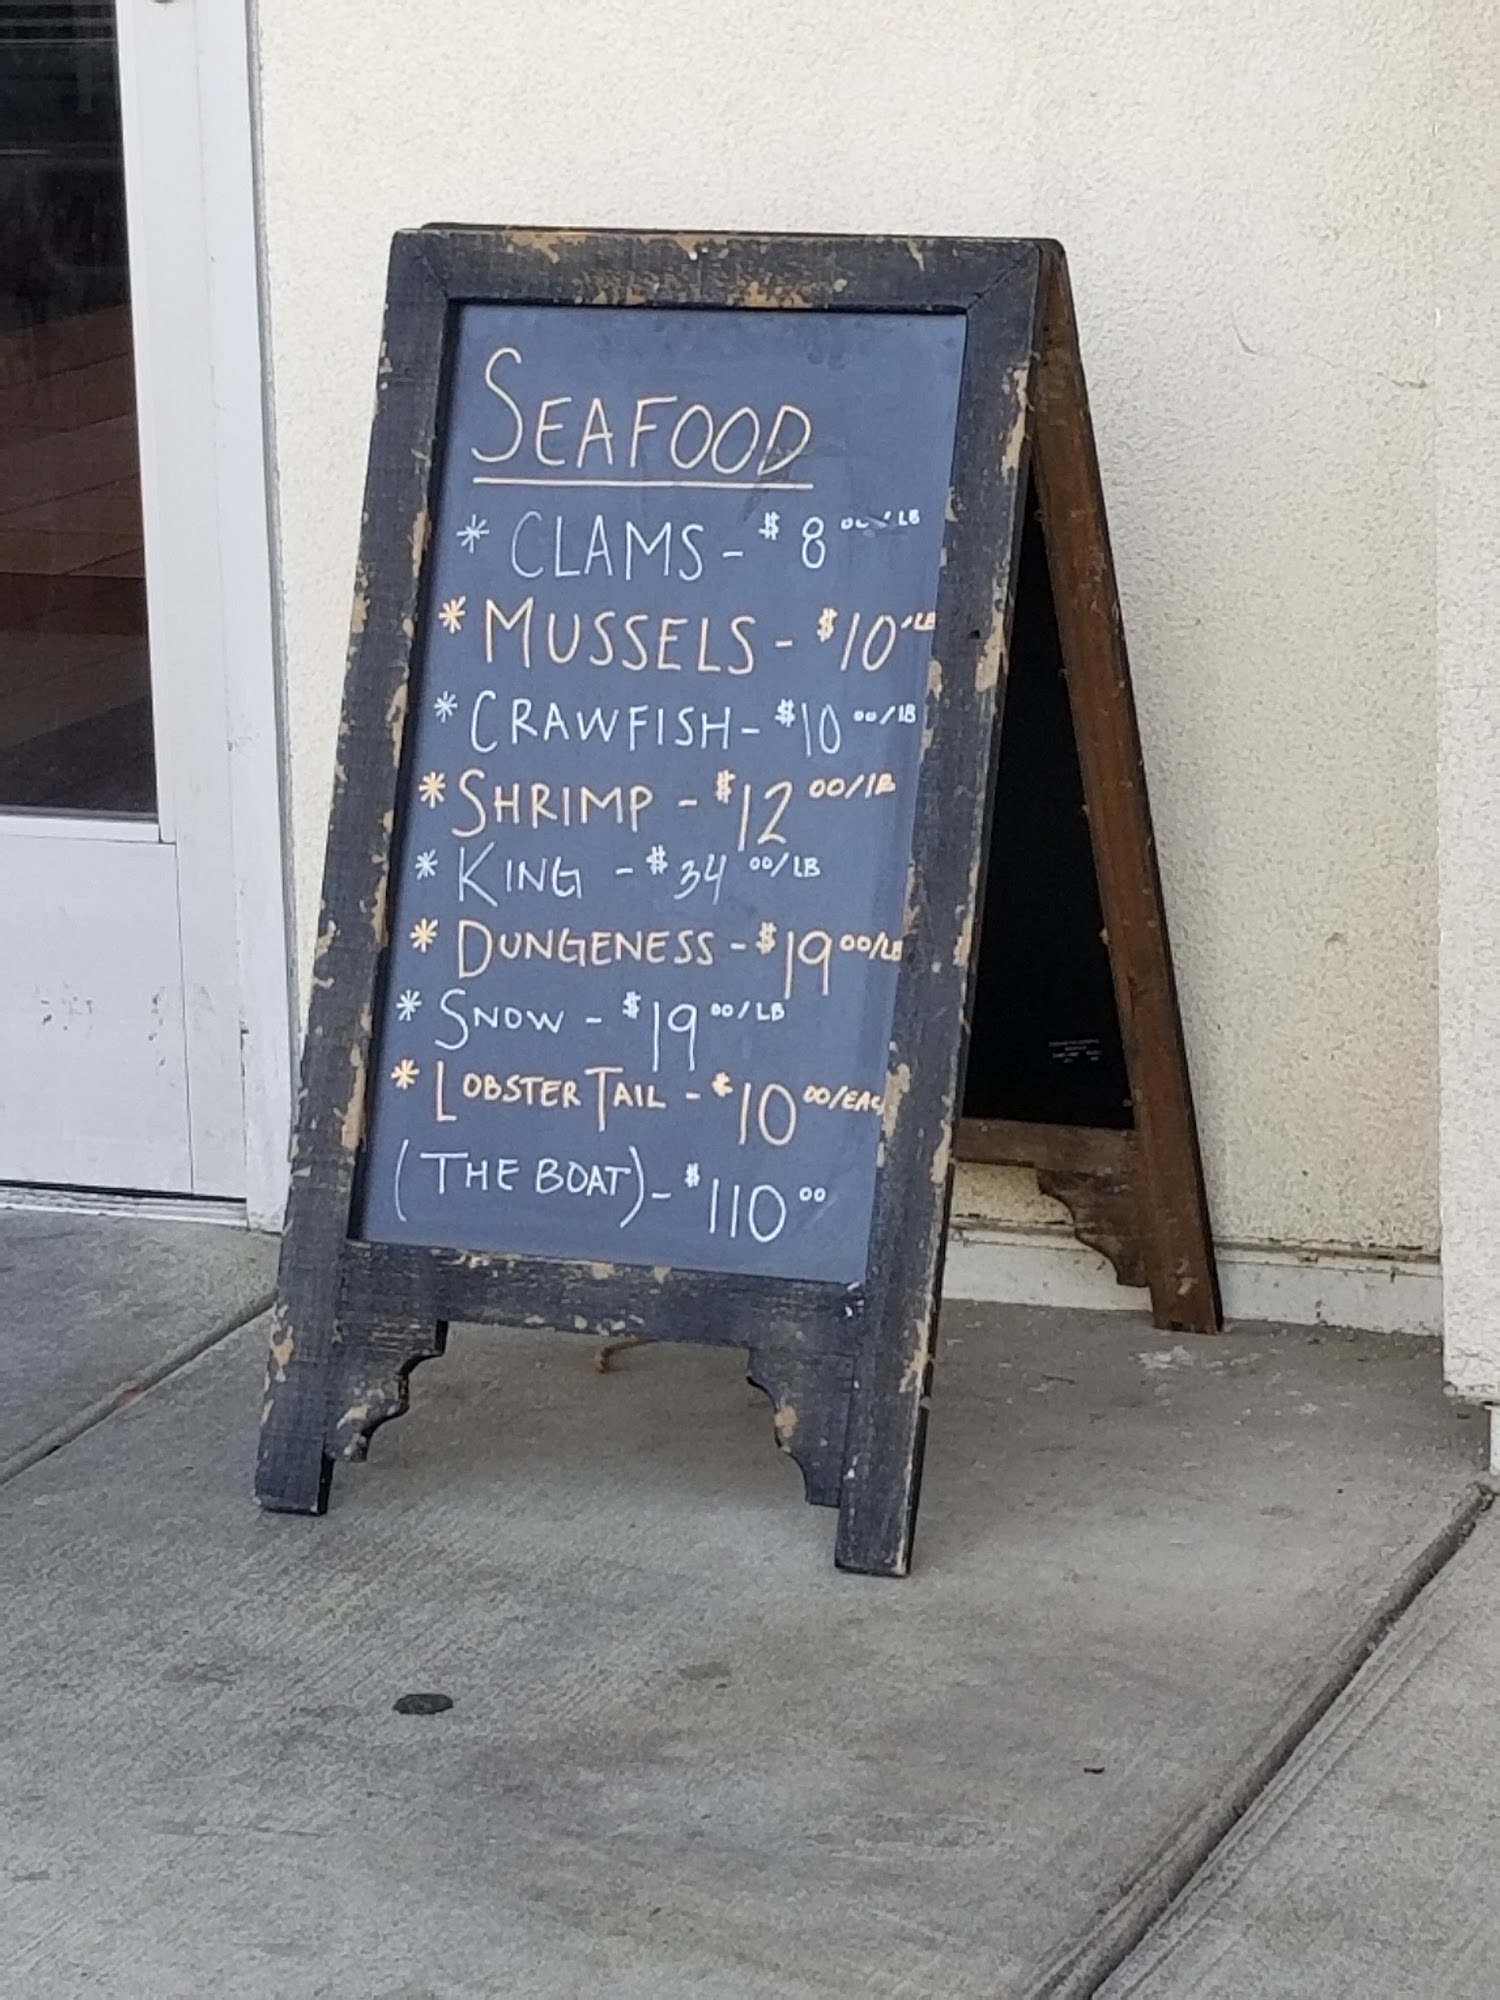 SEAFOOD
* CLAMS - $8 00/LB
* MUSSELS - $10/LB
* CRAWFISH - $10 00/LB
* SHRIMP - $12 00/LB
* KING - $34 00/LB
* DUNGENESS - $19 00/LB
* SNOW - $19 00/LB
* LOBSTER TAIL - $10 00/EACH
(THE BOAT) - $110 00